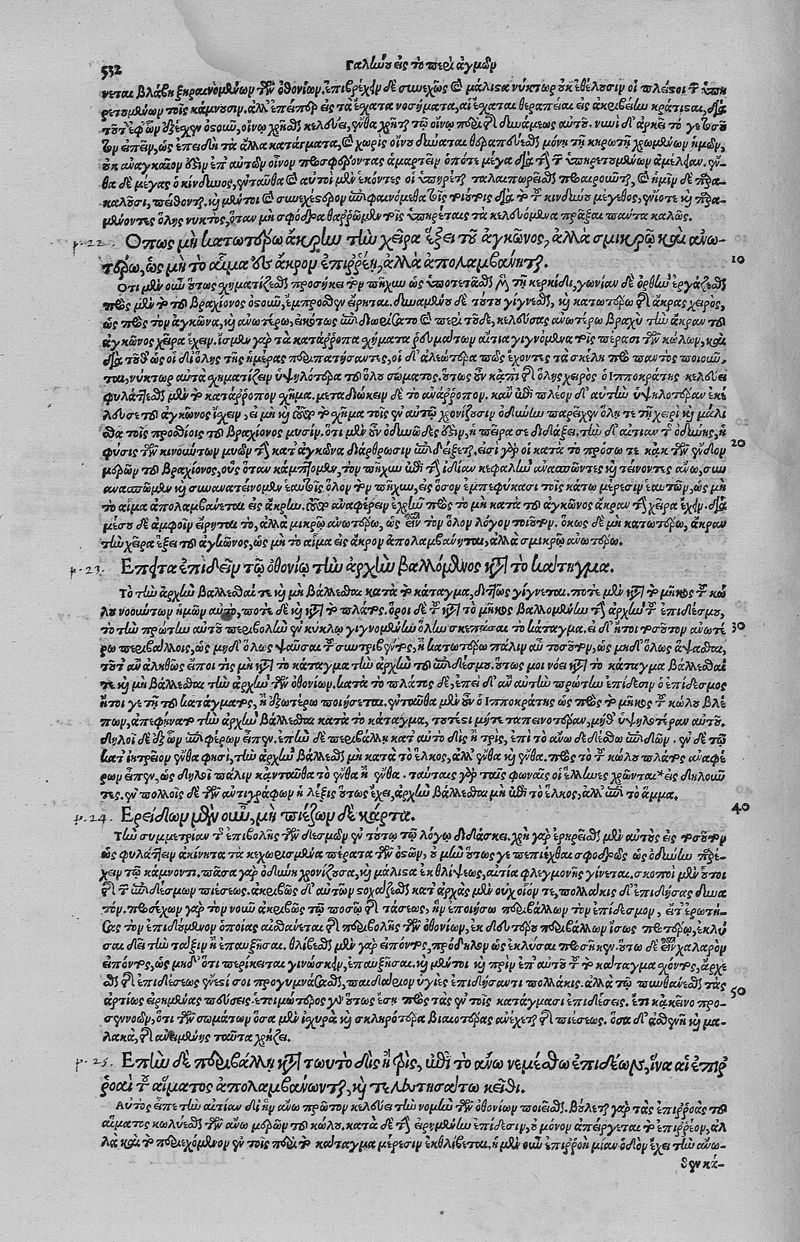 532 Γαλίωοῦ εἰς τὸ περὶ ἀγμῶν
νεται βλάβη ξηραινομένων τῶν ὀθονίων. ἐπιβρέχειν δὲ συνεχῶς καὶ μάλιστα νύκτωρ οὐκ ἐθέλουσιν οἱ πλεῖστοι τῶν ὑπη-
ρετουμένων τοῖς κάμνουσιν. ἀλλ' ἐπείπερ εἰς τὰ ἔσχατα νοσήματα, αἱ ἔσχαται θεραπεῖαι εἰς ἀκριβείην κράτισται, διὰ
κελεύει, ἔνθα
ἐπειδὴ τὰ ἄλλα κατάγματα, καὶ χωρὶς οἴνου δύναται θεραπεύεσθαι μόνῃ τῇ κηρωτῇ χρωμένων ἡμῶν,
οὐκ ἀναγκαῖον οἶνον προσφέροντας ἁμαρτεῖν ὁπότε μέγα διὰ τὴν τῶν ὑπηρετουμένων ἀμέλειαν. ἔν-
θα δὲ μέγας ὁ κίνδυνος, ἐνταῦθα καὶ αὐτοὶ μὲν ἑκόντες οἱ ὑπηρέται ταλαιπωρεῖσθαι προαιροῦνται, καὶ ἡμῖν δὲ παρα-
καλοῦσι, πείθονται. καὶ μέντοι καὶ συνεχέστερον ἐπιφαινόμεθα τοῖς τοιούτοις διὰ τὸ τοῦ κινδύνου μέγεθος, ἐνίοτε καὶ παρα-
μένοντες ὅλης νυκτὸς, ὅταν μὴ σφόδρα θαρρῶμεν τοῖς ὑπηρέταις τὰ κελευόμενα πρᾶξαι πάντα καλῶς.
p. 22. Ὅπως μὴ κατωτέρω ἄκρην τὴν χεῖρα ἕξει τοῦ ἀγκῶνος, ἀλλὰ σμικρῷ καὶ ἀνω-
τέρω, ὡς μὴ τὸ αἷμα ἐς ἄκρον ἐπιρρέῃ, ἀλλὰ ἀπολαμβάνηται. 10
Ὅτι μὲν οὖν οὕτως σχηματίζεσθαι προσήκει τὸν πῆχυν ὡς ὑποτετάσθαι μὲν τῇ κερκίδι, γωνίαν δὲ ὀρθὴν ἐργάζεσθαι
πρὸς μὲν τὸ τοῦ βραχίονος ὀστοῦν, ἔμπροσθεν εἴρηται. δυναμένου δὲ τούτου γίγνεσθαι, καὶ κατωτέρω τῆς ἄκρας χειρὸς,
ὡς πρὸς τὸν ἀγκῶνα, καὶ ἀνωτέρω, εἰκότως ἐπιδιωρίσατο καὶ περὶ τοῦδε, κελεύσας ἀνωτέρω βραχὺ τὴν ἄκραν τοῦ
ἀγκῶνος χεῖρα ἔχειν. ἴσμεν γὰρ τὰ κατάρροπα σχήματα ῥευμάτων αἴτια γιγνόμενα τοῖς πέρασι τῶν κώλων, καὶ
διὰ τοῦθ' ὡς οἱ δι' ὅλης τῆς ἡμέρας περιπατήσαντες, οἱ δ' ἀλεώτερά πως ἔχοντες τὰ σκέλη πρὸ παντὸς ποιοῦν-
ται, νύκτωρ αὐτὰ σχηματίζειν ὑψηλότερα τοῦ ὅλου σώματος. οὕτως οὖν κἀπὶ τῆς ὅλης χειρὸς ὁ Ἱπποκράτης κελεύει
φυλάττεσθαι μὲν τὸ κατάρροπον σχῆμα. μεταδιώκειν δὲ τὸ ἀνάρροπον. καὶ ἐπὶ πλέον δ' αὐτὴν ὑψηλοτέραν ἐκέ-
λευσε τοῦ ἀγκῶνος ἴσχειν, εἰ μὴ καὶ τοῦτο τὸ σχῆμα τοῖς ἐν αὐτῷ χρονίζουσιν ὀδύνην παρεῖχεν ὅλῃ τε τῇ χειρὶ καὶ μάλι-
στα τοῖς προσθίοις τοῦ βραχίονος μυσίν. ὅτι μὲν οὖν ὀδυνῶδές ἐστιν, ἡ πεῖρά σε διδάξει, τὴν δ' αἰτίαν τῆς ὀδύνης, ἡ 20
φύσις τῶν κινούντων μυῶν τὴν κατ' ἀγκῶνα διάρθρωσιν ἐπιδείξεται, εἰσὶ γὰρ οἱ κατὰ τὸ πρόσω τε καὶ τῶν ἔνδον
μερῶν τοῦ βραχίονος, οὓς ὅταν κάμπτωμεν, τὸν πῆχυν ἐπὶ τὴν ἰδίαν κεφαλὴν ἀνασπῶντες καὶ τείνοντες ἄνω, συν
ανασπῶμεν καὶ συνανατείνομεν ἑαυτοῖς ὅλον τὸν πῆχυν, εἰς ὅσον ἐμπεφύκασι τοῖς κάτω μέρεσιν ἑαυτῶν, ὡς μὴ
τὸ αἷμα ἀπολαμβάνεται εἰς ἄκρην. τοῦτο ἀναφέρειν ἐχρῆν πρὸς τὸ μὴ κατὰ τοῦ ἀγκῶνος ἄκραν τὴν χεῖρα ἔχειν. διὰ
μέσου δὲ ἀμφοῖν εἴρηται τὸ, ἀλλὰ μικρῷ ἀνωτέρω, ὡς εἶναι τὸν ὅλον λόγον τοιοῦτον. ὅκως δὲ μὴ κατωτέρω, ἄκραν
τὴν χεῖρα ἕξει τοῦ ἀγκῶνος, ὡς μὴ τὸ αἷμα εἰς ἄκρον ἀπολαμβάνηται, ἀλλὰ σμικρῷ ἀνωτέρω.
p. 23. Ἔπειτα ἐπιδεῖν τῷ ὀθονίῳ τὴν ἀρχὴν βαλλόμενος κατὰ τὸ κάτηγμα.
Τὸ τὴν ἀρχὴν βάλλεσθαί τε καὶ μὴ βάλλεσθαι κατὰ τὸ κάταγμα, διττῶς γίγνεται. ποτὲ μὲν κατὰ τὸ μῆκος τοῦ κώ-
λου νοούντων ἡμῶν αὐτὸ, ποτὲ δὲ καὶ κατὰ τὸ πλάτος. ὅροι δὲ τοῦ κατὰ τὸ μῆκος βαλλομένην τὴν ἀρχὴν τοῦ ἐπιδέσμου,
τὸ τὴν πρώτην αὐτοῦ περιβολὴν ἐν κύκλῳ γιγνομένην ὅλην σκεπάσαι τὸ κάταγμα. εἰ δ' ἤτοι τοσοῦτον ἀνωτέ 30
ρω περιβάλλοις, ὡς μηδ' ὅλως ψαῦσαι τοῦ συντριβέντος, ἢ κατωτέρω πάλιν αὖ τοσοῦτον, ὡς μηδ' ὅλως ἅψασθαι,
τότ' ἂν ἀληθῶς εἴποι τις μὴ κατὰ τὸ κάταγμα τὴν ἀρχὴν τοῦ ἐπιδέσμου. οὕτως μοι νόει κατὰ τὸ κάταγμα βάλλεσθαί
τε καὶ μὴ βάλλεσθαι τὴν ἀρχὴν τῶν ὀθονίων. κατὰ τὸ πλάτος δὲ, ἐπειδ' ἂν αὐτὴν πρώτην ἐπίδεσιν ὁ ἐπίδεσμος
ἤτοι γε τῇ τοῦ κατάγματος, ἢ ἐξωτέρω ποιήσεται. ἐνταῦθα μὲν οὖν ὁ Ἱπποκράτης ὡς πρὸς τὸ μῆκος τοῦ κώλου βλέ
πων, ἀπεφήνατο τὴν ἀρχὴν βάλλεσθαι κατὰ τὸ κάταγμα, τουτέστι μήτε ταπεινοτέραν, μήθ' ὑψηλοτέραν αὐτοῦ.
δηλοῖ δὲ ἐξ ὧν ἐπιφέρων εἶπεν. ἐπὴν δὲ περιβάλῃ κατ' αὐτὸ δὶς ἢ τρὶς, ἐπὶ τὸ ἄνω δεέσθω ἐπιδέων. ἐν δὲ τῷ
κατ' ἰητρεῖον ἔνθα φησὶ, τὴν ἀρχὴν βάλλεσθαι μὴ κατὰ τὸ ἕλκος, ἀλλ' ἔνθα καὶ ἔνθα. πρὸς τὸ τοῦ κώλου πλάτος ἀναφέ
ρων εἶπεν, ὡς δηλοῖ πάλιν κἀνταῦθα τὸ ἔνθα ἢ ἔνθα. ταύταις γὰρ ταῖς φωναῖς οἱ ἕλληνες χρῶνται* εἰς δηλοῦν
τες. ἐν πολλοῖς δὲ τῶν ἀντιγράφων ἡ λέξις οὕτως ἔχει, ἀρχὴν βάλλεσθαι μὴ ἐπὶ τὸ ἕλκος, ἀλλ' ἐπὶ τὸ ἅμμα.
p. 24. Ἐρείδων μὲν οὖν, μὴ πιέζων δὲ κάρτα. 40
Τὴν συμμετρίαν τῆς ἐπιβολῆς τῶν δεσμῶν ἐν τούτῳ τῷ λόγῳ διδάσκει. χρὴ γὰρ ἐρηρεῖσθαι μὲν αὐτοὺς εἰς τοσοῦτον
ὡς φυλάττειν ἀκίνητα τὰ κεχωρισμένα πέρατα τῶν ὀστῶν, οὐ μὴν οὕτως γε πεπιέχθαι σφοδρῶς ὡς ὀδύνην παρέ-
χειν τῷ κάμνοντι. πᾶσα γὰρ ὀδύνη χρονίζουσα, καὶ μάλιστα ἐκθλίψεως, αἰτία φλεγμονῆς γίνεται. σκοποὶ μὲν οὗτοι
τῆς τῶν ἐπιδέσμων πιέσεως. ἀκριβῶς δ' αὐτῶν στοχάζεσθαι κατ' ἀρχὰς μὲν οὐχ οἷόν τε, πολλάκις δ' ἐπιδήσας δυνα
τόν. προσέχων γὰρ τὸν νοῦν ἀκριβῶς τῷ ποσῷ τῆς τάσεως, ἣν ἐποιήσω περιβάλλων τὸν ἐπίδεσμον, εἶτ' ἐρωτή-
σας τὸν ἐπιδούμενον ὁποίας αἰσθάνεται τῆς περιβολῆς τῶν ὀθονίων, ἐκ δευτέρου περιβάλλων ἴσως προτέρῳ, ἐκλύ
σαι δεῖ τὴν τάξιν ἢ ἐπαυξῆσαι. θλίβεσθαι μὲν γὰρ εἰπόντος, πρόδηλον ὡς ἐκλῦσαι προσῆκεν. οὕτω δὲ εἶναι χαλαρὸν
εἰπόντος, ὡς μηδ' ὅτι περίκειται γινώσκειν, ἐπαυξῆσαι. καὶ μέντοι καὶ πρὶν ἐπ' αὐτοῦ τοῦ τὸ κάταγμα ἔχοντος, ἄρχε
σθαι τῆς ἐπιδέσεως ἔνεστί σοι προγυμνάζεσθαι, παιδάριον ὑγιὲς ἐπιδήσαντι πολλάκις. ἀλλὰ τῷ πυνθάνεσθαι τὰς
ἀρτίως εἰρημένας πεύσεις. ἑτοιμότερος γὰρ οὕτως ἔσῃ πρὸς τὰς ἐν τοῖς κατάγμασι ἐπιδέσεις. ἔτι κἀκεῖνο προ- 50
σεννοῶν, ὅτι τῶν σωμάτων ὅσα μὲν ἰσχυρὰ καὶ σκληρότερα βιαιοτέρας ἀνέχεται τῆς πιέσεως. ὅσα δ' ἀσθενῆ καὶ μα-
λακὰ, τῆς ἀνειμένης ταῦτα χρῄζει.
p. 25. Ἐπὴν δὲ περιβάλῃ κατὰ τωυτὸ δὶς ἢ τρὶς, ἐπὶ τὸ ἄνω νεμέσθω ἐπιδέων, ἵνα αἱ ἐπιρ-
ροαὶ τοῦ αἵματος ἀπολαμβάνωνται, καὶ τελευτησάτω κεῖθι.
Αὐτὸς εἶπε τὴν αἰτίαν δι' ἣν ἄνω πρῶτον κελεύει τὴν νομὴν τῶν ὀθονίων ποιεῖσθαι. βούλεται γὰρ τὰς ἐπιρροὰς τοῦ
αἵματος κωλύεσθαι τῶν ἄνω μερῶν τοῦ κώλου, κατὰ δὲ τὴν εἰρημένην ἐπίδεσιν, οὐ μόνον ἀπείργεται τὸ ἐπιρρέον, ἀλ
λὰ καὶ τὸ περιεχόμενον ἐν τοῖς περὶ τὸ κάταγμα μέρεσιν ἐκθλίβεται. ἡ μὲν οὖν ἐπιρροὴ μίαν ὁδὸν ἔχει τὴν ἄνω-
θεν κά-